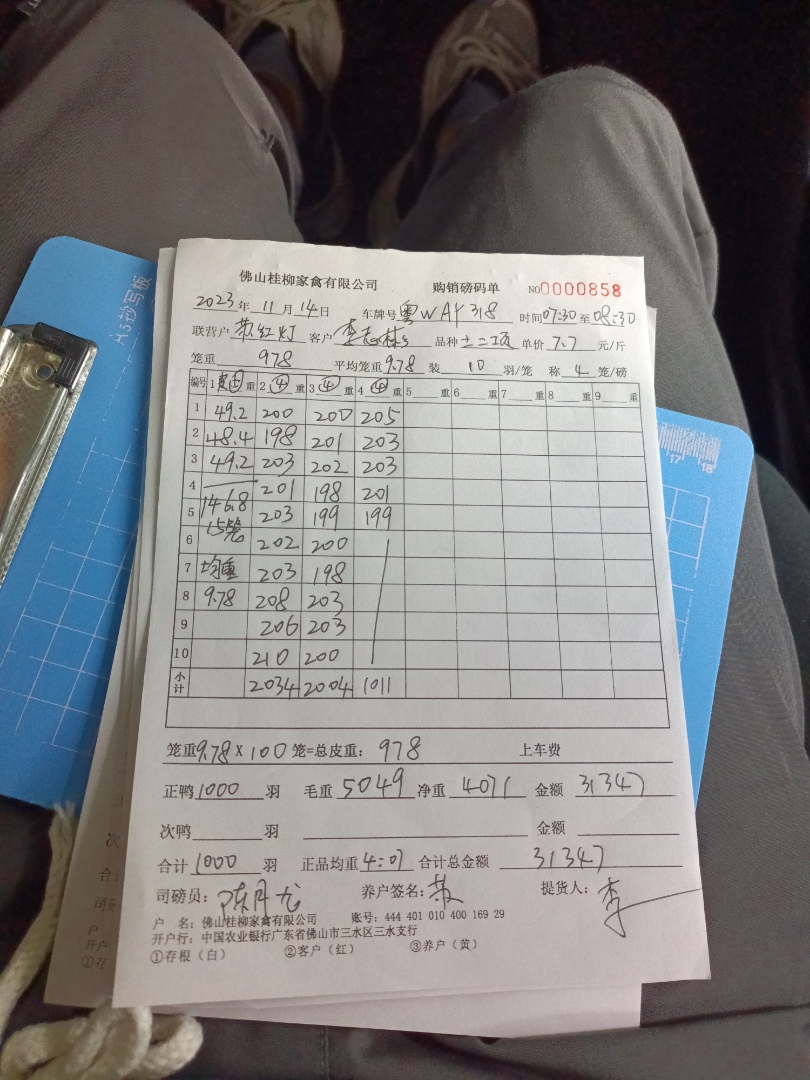 A5抄写板
17 18
佛山桂柳家禽有限公司 购销磅码单 NO0000858
2023年11月14日 车牌号粤WAY318 时间07:30至08:30
联营户 红灯 客户李志 品种土二项 单价7.7元/斤
笼重978 平均笼重9.78 装10羽/笼 称4笼/磅
编号 1 重 2④重 3④重 4④重 5重 6重 7重 8重 9重
1 49.2 200 200 205
2 48.4 198 201 203
3 49.2 203 202 203
4 201 198 201
146.8
5 203 199 199
15笼
6 202 200
7 均重 203 198
8 9.78 208 203
9 206 203
10 210 200
小计 2034 2004 1011
笼重9.78X100笼=总皮重：978 上车费
正鸭1000羽 毛重5049 净重4071 金额31347
次鸭 羽 金额
合计1000羽 正品均重4:07 合计总金额31347
司磅员：陈 养户签名： 提货人：李
户 名：佛山桂柳家禽有限公司 账号：444 401 010 400 169 29
开户行：中国农业银行广东省佛山市三水区三水支行
①存根（白） ②客户（红） ③养户（黄）
次
合计
司磅
户
开户
①存